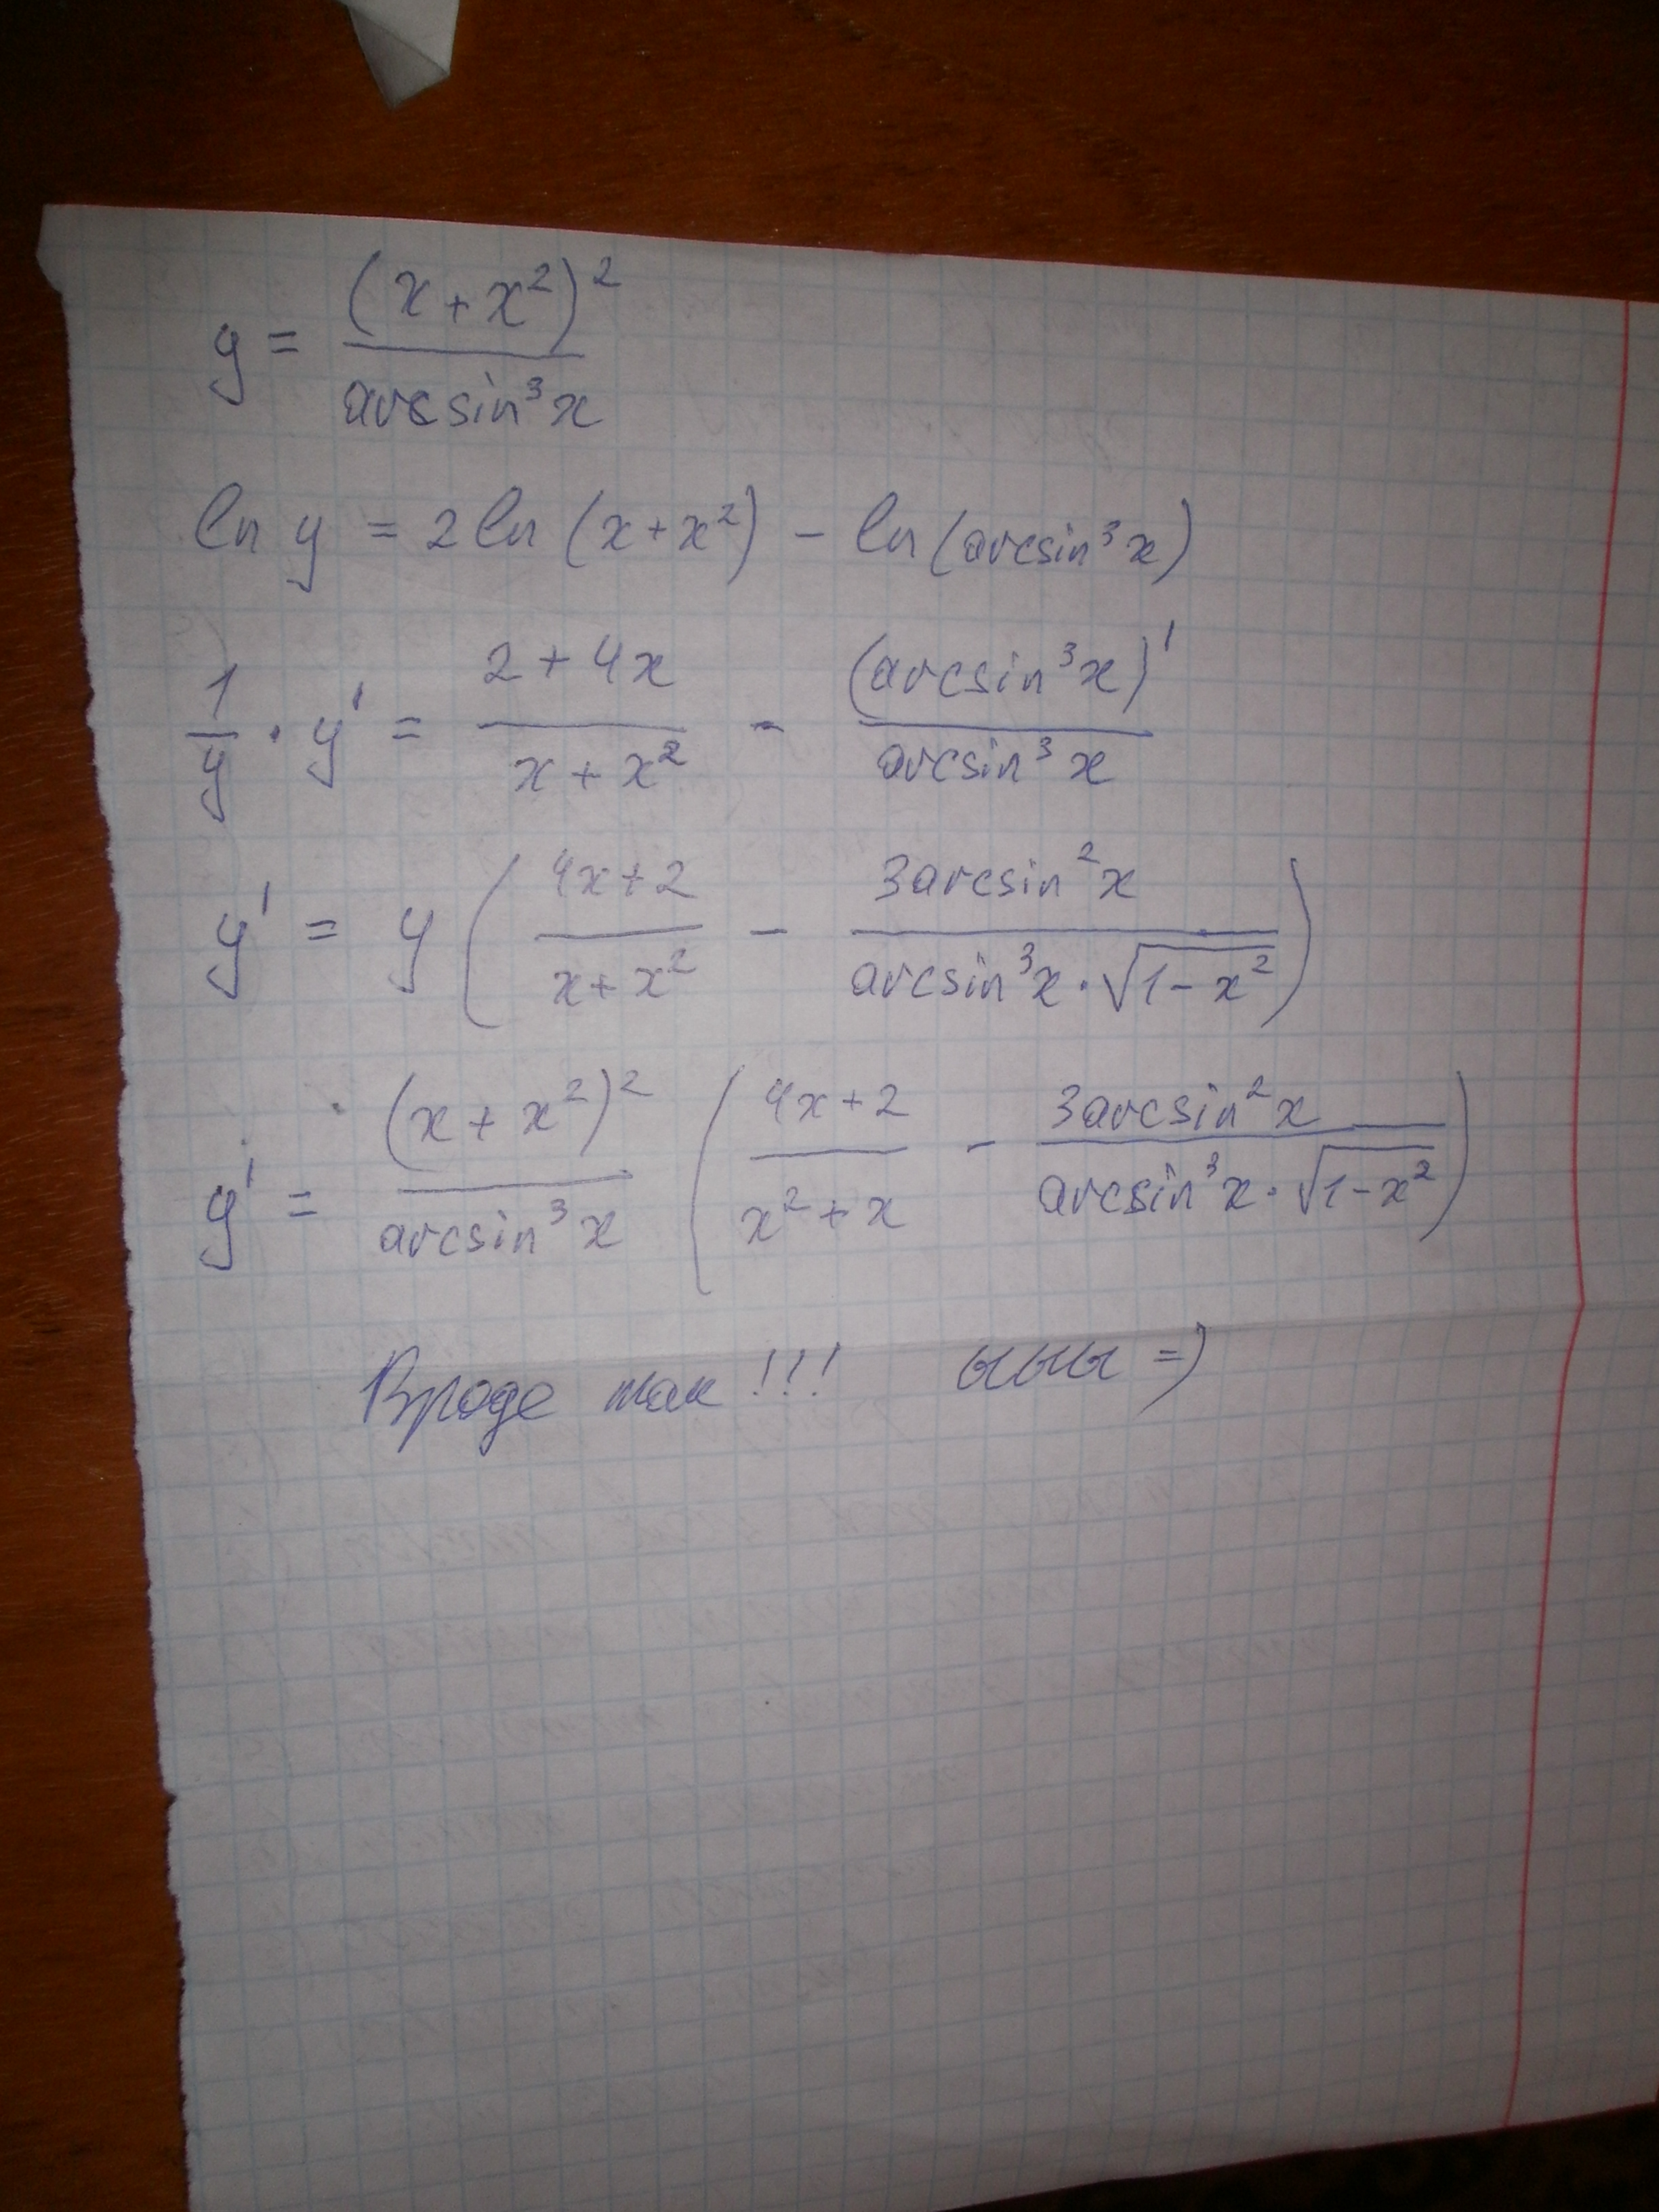 y = (x + x²)² / arcsin³x
ln y = 2 ln (x + x²) − ln (arcsin³x)
1/y · y' = (2 + 4x) / (x + x²) − (arcsin³x)' / arcsin³x
y' = y ( (4x + 2) / (x + x²) − 3arcsin²x / (arcsin³x · √(1 − x²)) )
y' = (x + x²)² / arcsin³x ( (4x + 2) / (x² + x) − 3arcsin²x / (arcsin³x · √(1 − x²)) )
Вроде так!!! ыыы =)